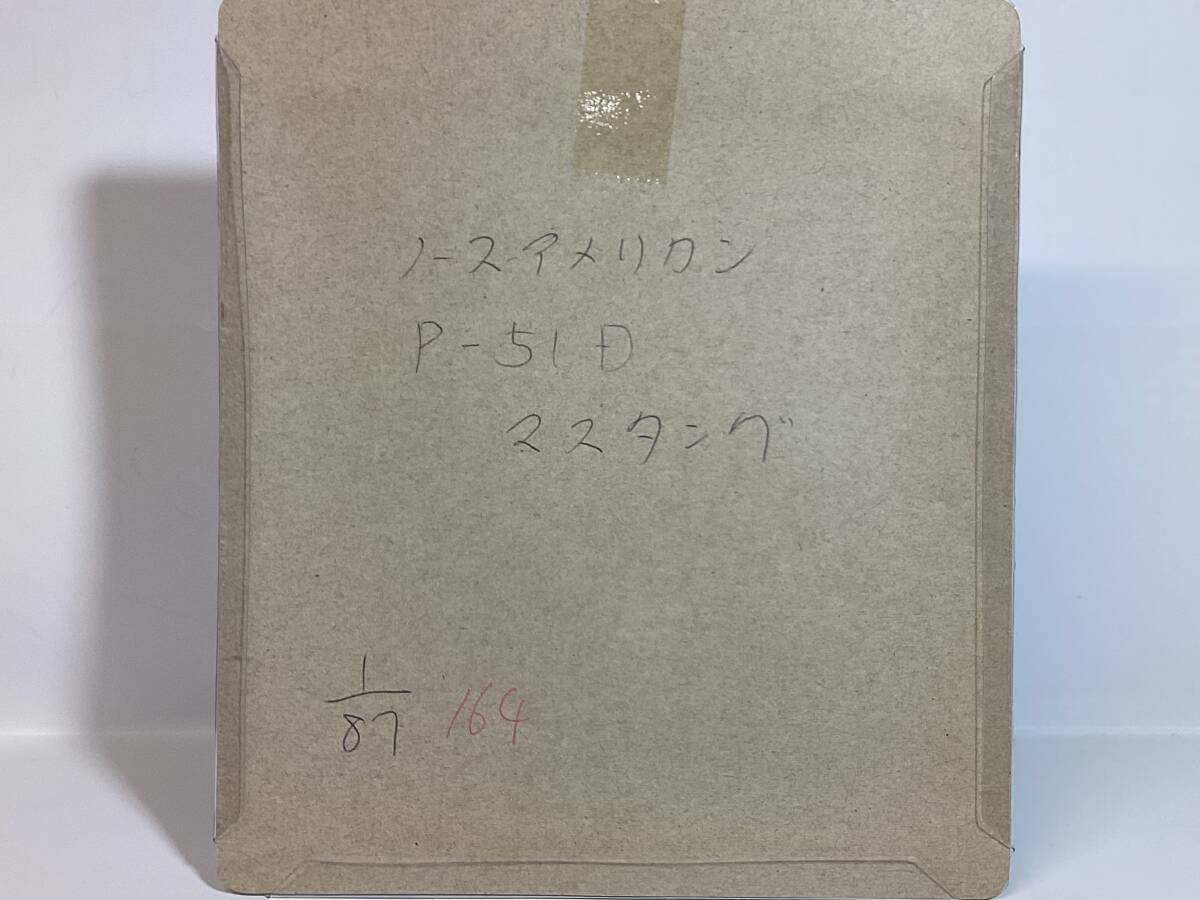 ノースアメリカン
P-51D
マスタング
1/87 164